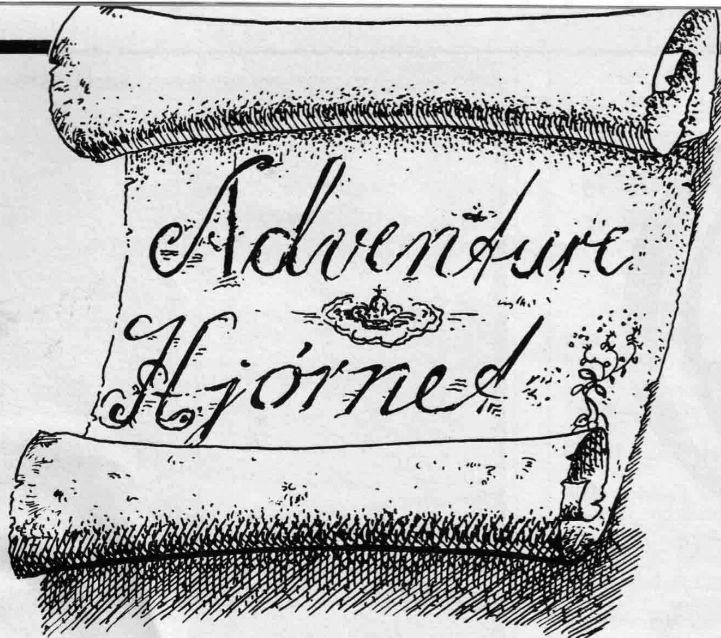 Adventure
Hjórnet